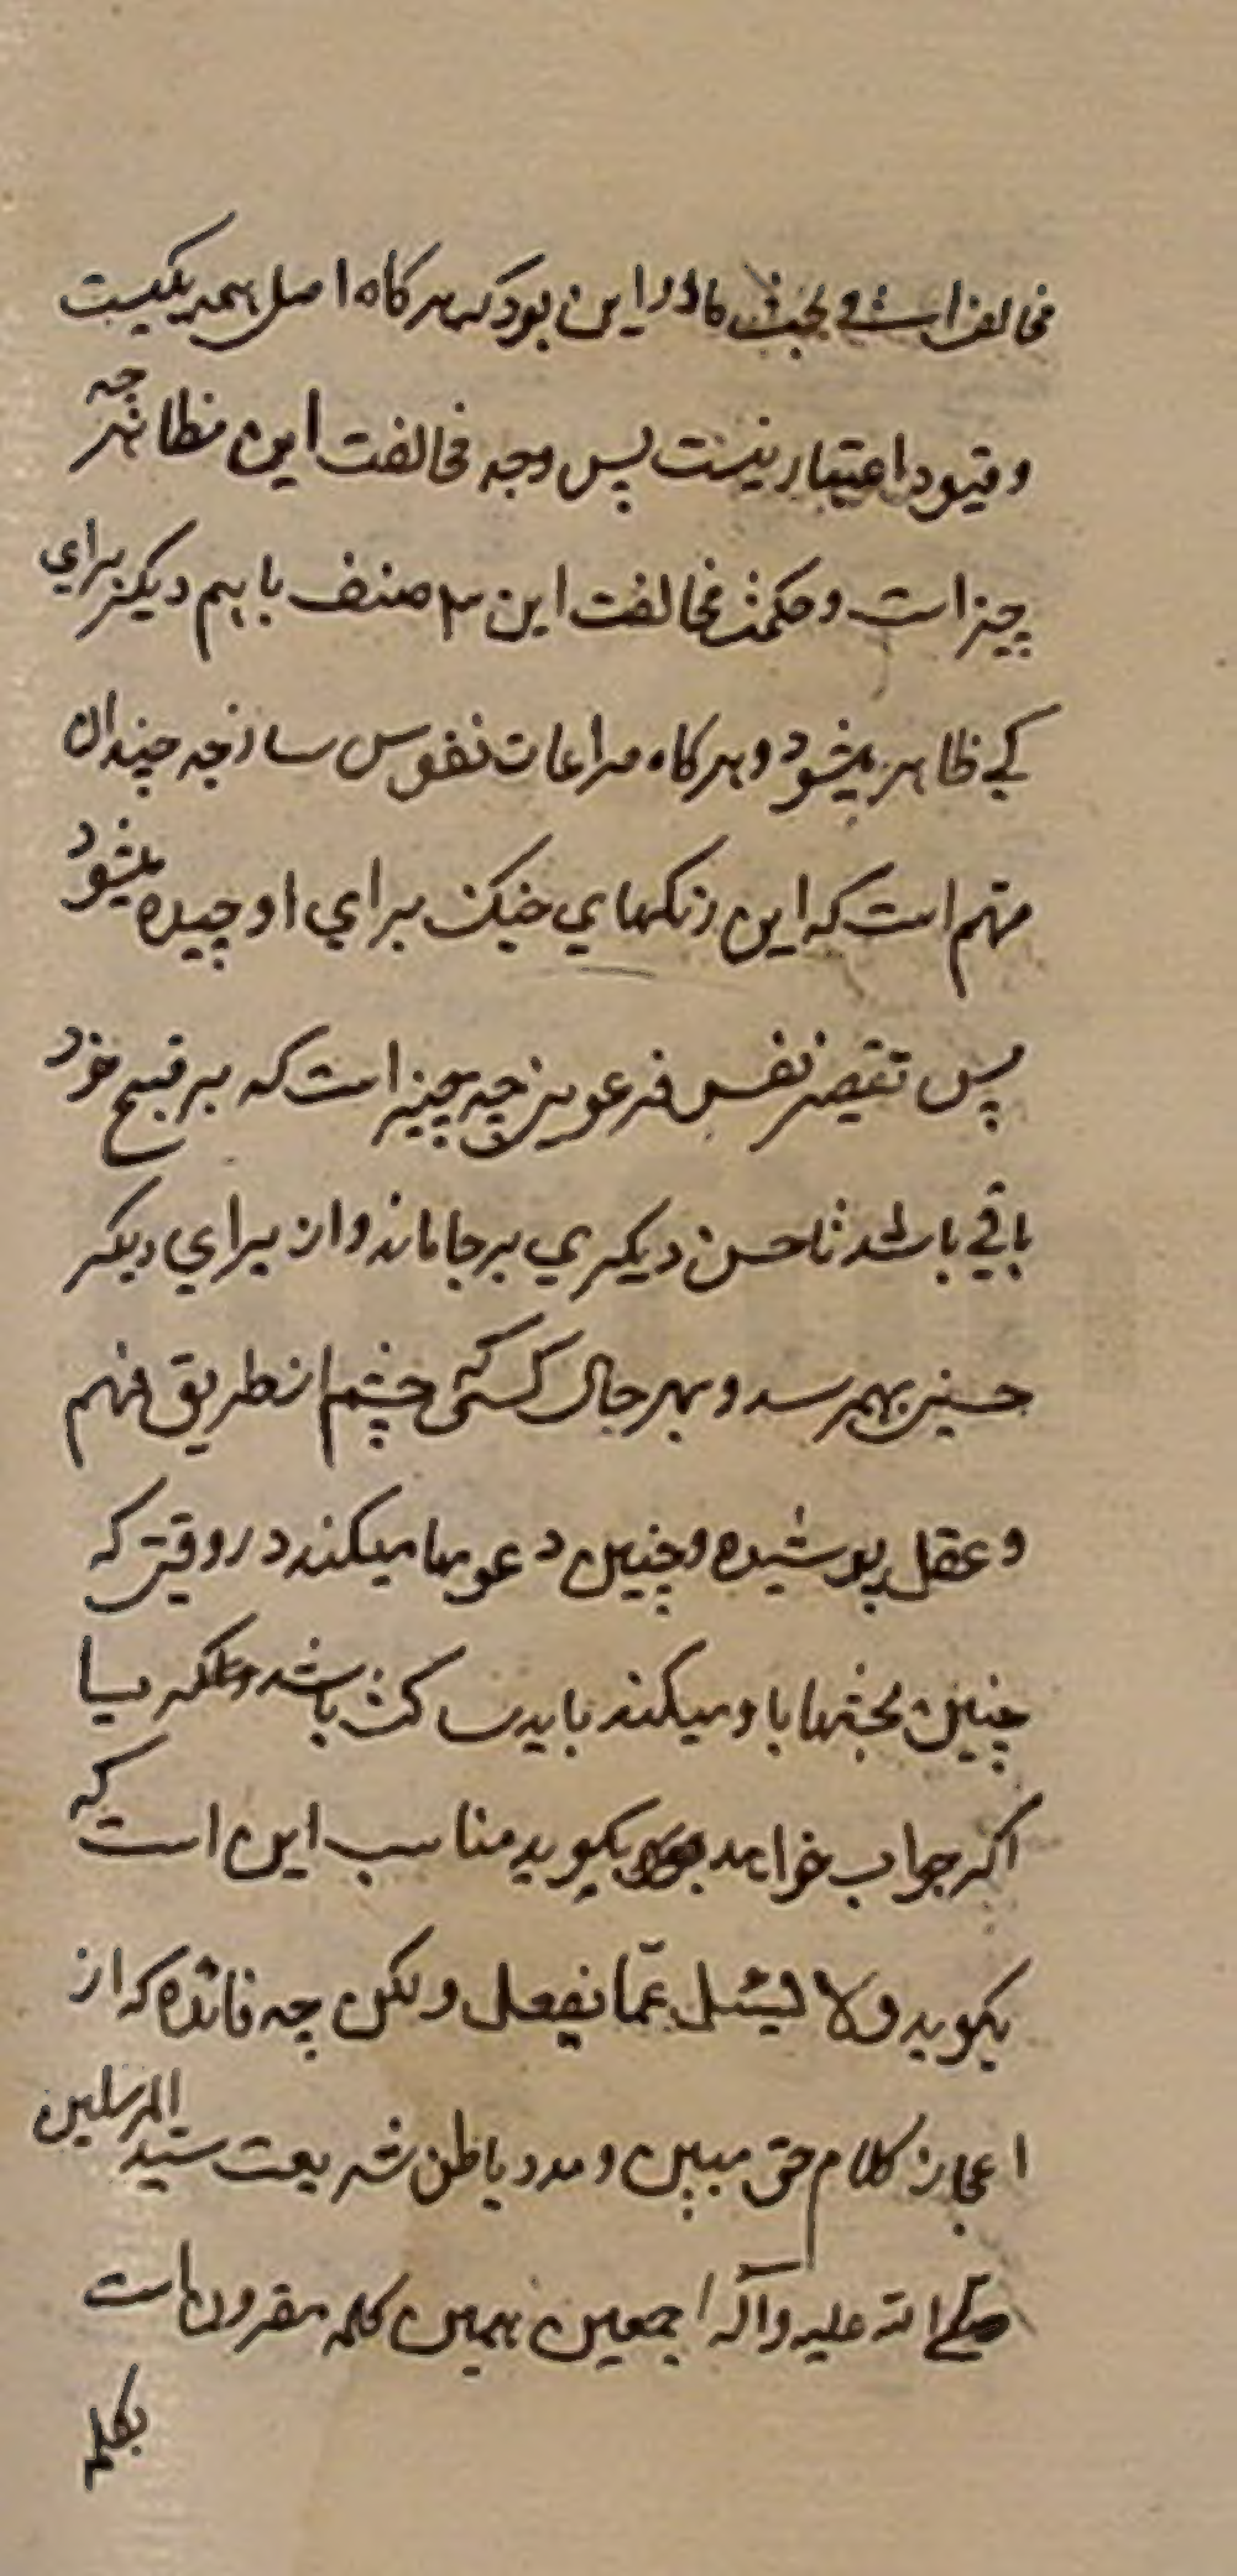 مخالف است و بحث ما در این بود که هرکاه اصل همه یکیست
و قیود اعتبار نیست پس وجه مخالفت این مظاهر چه
چیز است و حکمت مخالفت این ۳ صنف با هم دیکر برای
کی ظاهر میشود و هرکاه مراعات نفوس ساذجه چندان
مهم است که این رنکهای خنک برای او چیده میشود
پس تقصیر نفس فرعون چه چیز است که بر قبح خود
باقی باشد تا حسن دیکری بر جا ماند و از برای دیکر
حسنی بهم رسد و بهر حال کسی که چشم از طریق فهم
و عقل پوشیده و چنین دعویها میکند در وقتی که
چنین بحثها با او میکند باید ساکت باشد
اکر جواب خواهد بکوید مناسب این است که
بکوید ولا لیسئل عمّا یفعل ولکن چه فائده که از
اعجاز کلام حق مبین و مدد باطن شریعت سید المرسلین
صلی الله علیه وآله اجمعین همین کلمه مقرون است
بکلمه